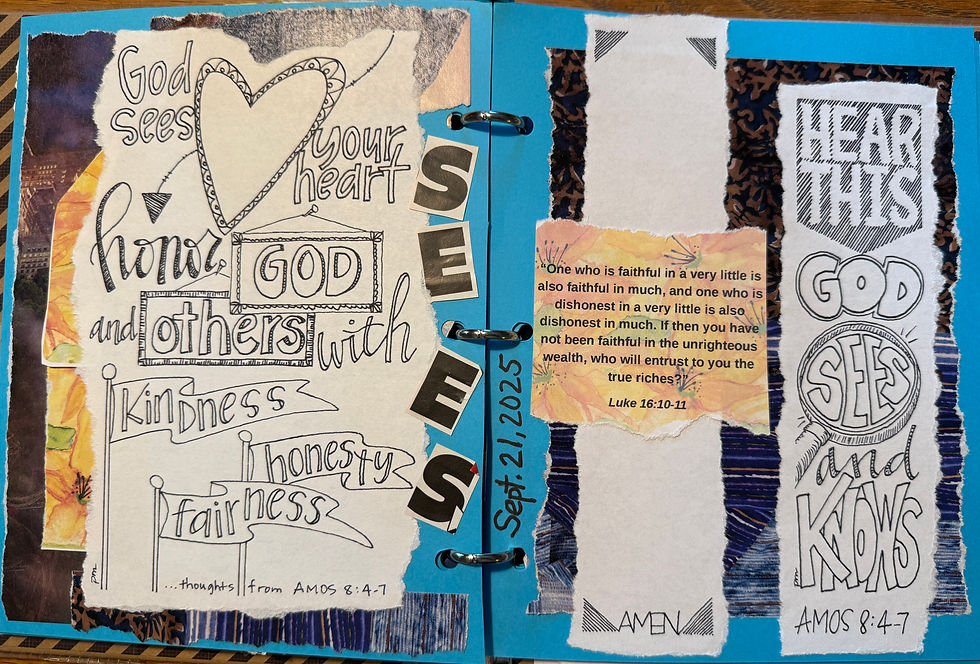 God
sees
your
heart
honor
GOD
and others with
kindness
honesty
fairness
pm
...thoughts from AMOS 8:4-7
SEES
Sept. 21, 2025
“One who is faithful in a very little is
also faithful in much, and one who is
dishonest in a very little is also
dishonest in much. If then you have
not been faithful in the unrighteous
wealth, who will entrust to you the
true riches?”
Luke 16:10-11
AMEN
HEAR
THIS
GOD
SEES
and
KNOWS
pm
AMOS 8:4-7